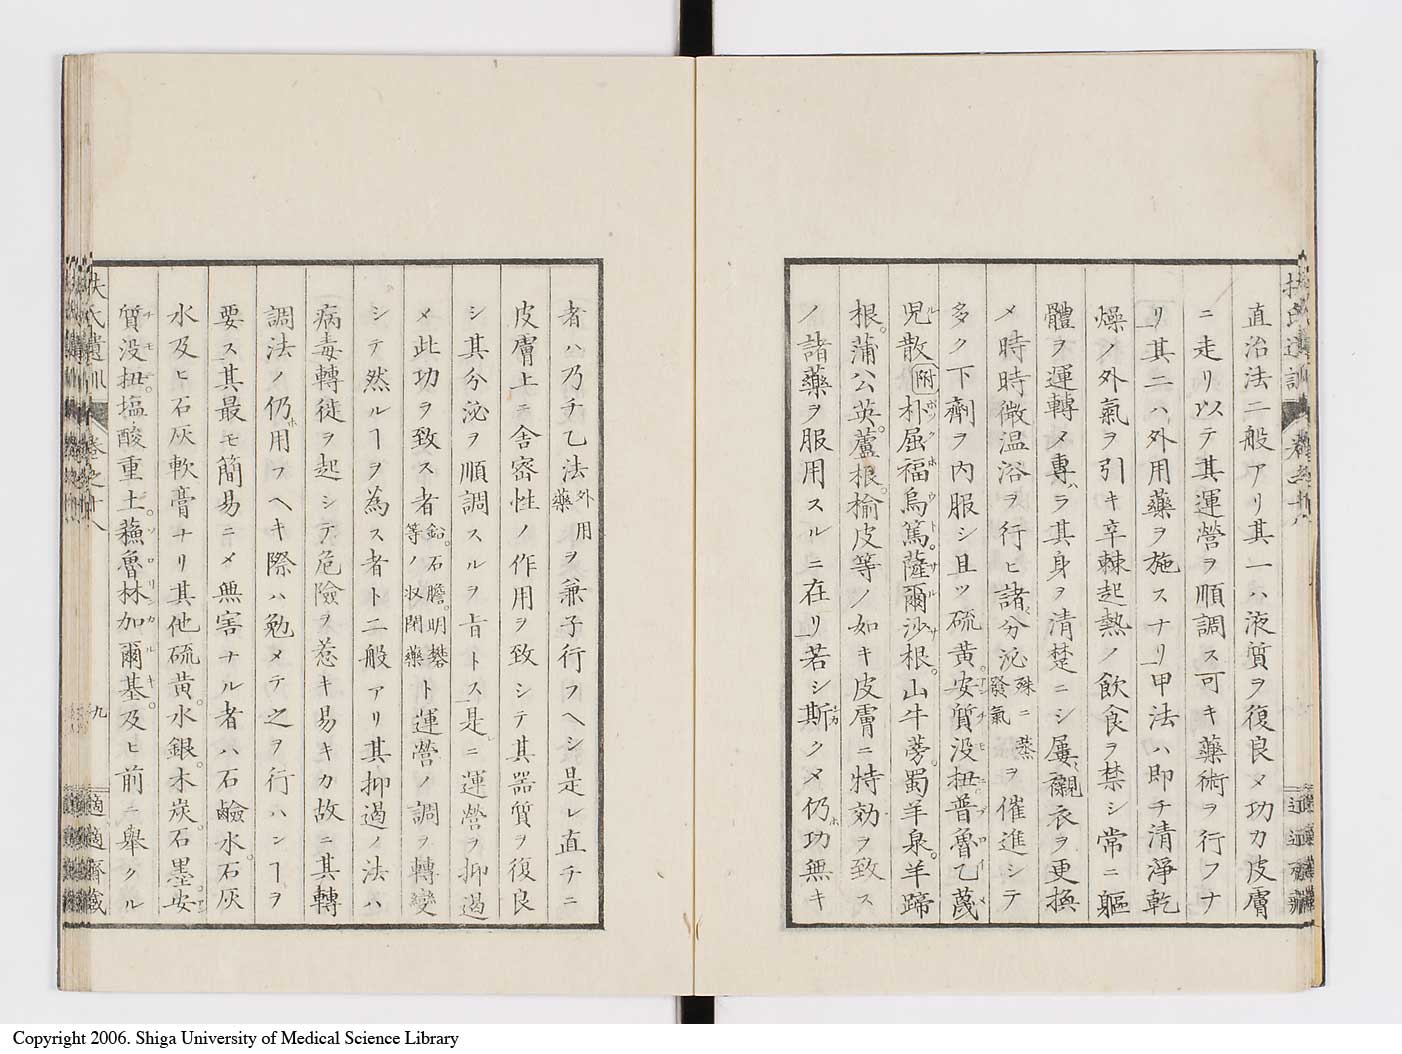 直治法二般アリ其一ハ液質ヲ復良メ功力皮膚
ニ走リ以テ其運營ヲ順調ス可キ藥術ヲ行フナ
リ其二ハ外用藥ヲ施スナリ甲法ハ即チ清淨乾
燥ノ外氣ヲ引キ辛棘起熱ノ飲食ヲ禁シ常ニ軀
體ヲ運轉メ專ラ其身ヲ清楚ニシ屢襯衣ヲ更換
メ時時微温浴ヲ行ヒ諸分泌殊ニ蒸發氣ヲ催進シテ
多ク下劑ヲ内服シ且ツ硫黄安質没扭普魯乙蔑
児散附朴屈福烏篤。薩爾沙根。山牛蒡。蜀羊泉。羊蹄
根。蒲公英。蘆根。楡皮等ノ如キ皮膚ニ特効ヲ致ス
ノ諸藥ヲ服用スルニ在リ若シ斯クメ仍功無キ
者ハ乃チ乙法外用藥ヲ兼子行フヘシ是レ直チニ
皮膚上ニ舎密性ノ作用ヲ致シテ其器質ヲ復良
シ其分泌ヲ順調スルヲ旨トス是ニ運營ヲ抑遏
メ此功ヲ致ス者鉛。石膽。明礬等ノ収閉藥ト運營ノ調ヲ轉變
シテ然ルヿヲ為ス者ト二般アリ其抑遏ノ法ハ
病毒轉徙ヲ起シテ危險ヲ惹キ易キカ故ニ其轉
調法ノ仍用フヘキ際ハ勉メテ之ヲ行ハンヿヲ
要ス其最モ簡易ニメ無害ナル者ハ石鹼水。石灰
水及ヒ石灰軟膏ナリ其他硫黄。水銀。木炭。石墨。安
質没扭。塩酸重土。蘓魯林加爾基。及ヒ前ニ舉クル
扶氏遺訓 卷之十八 九 適適齋藏